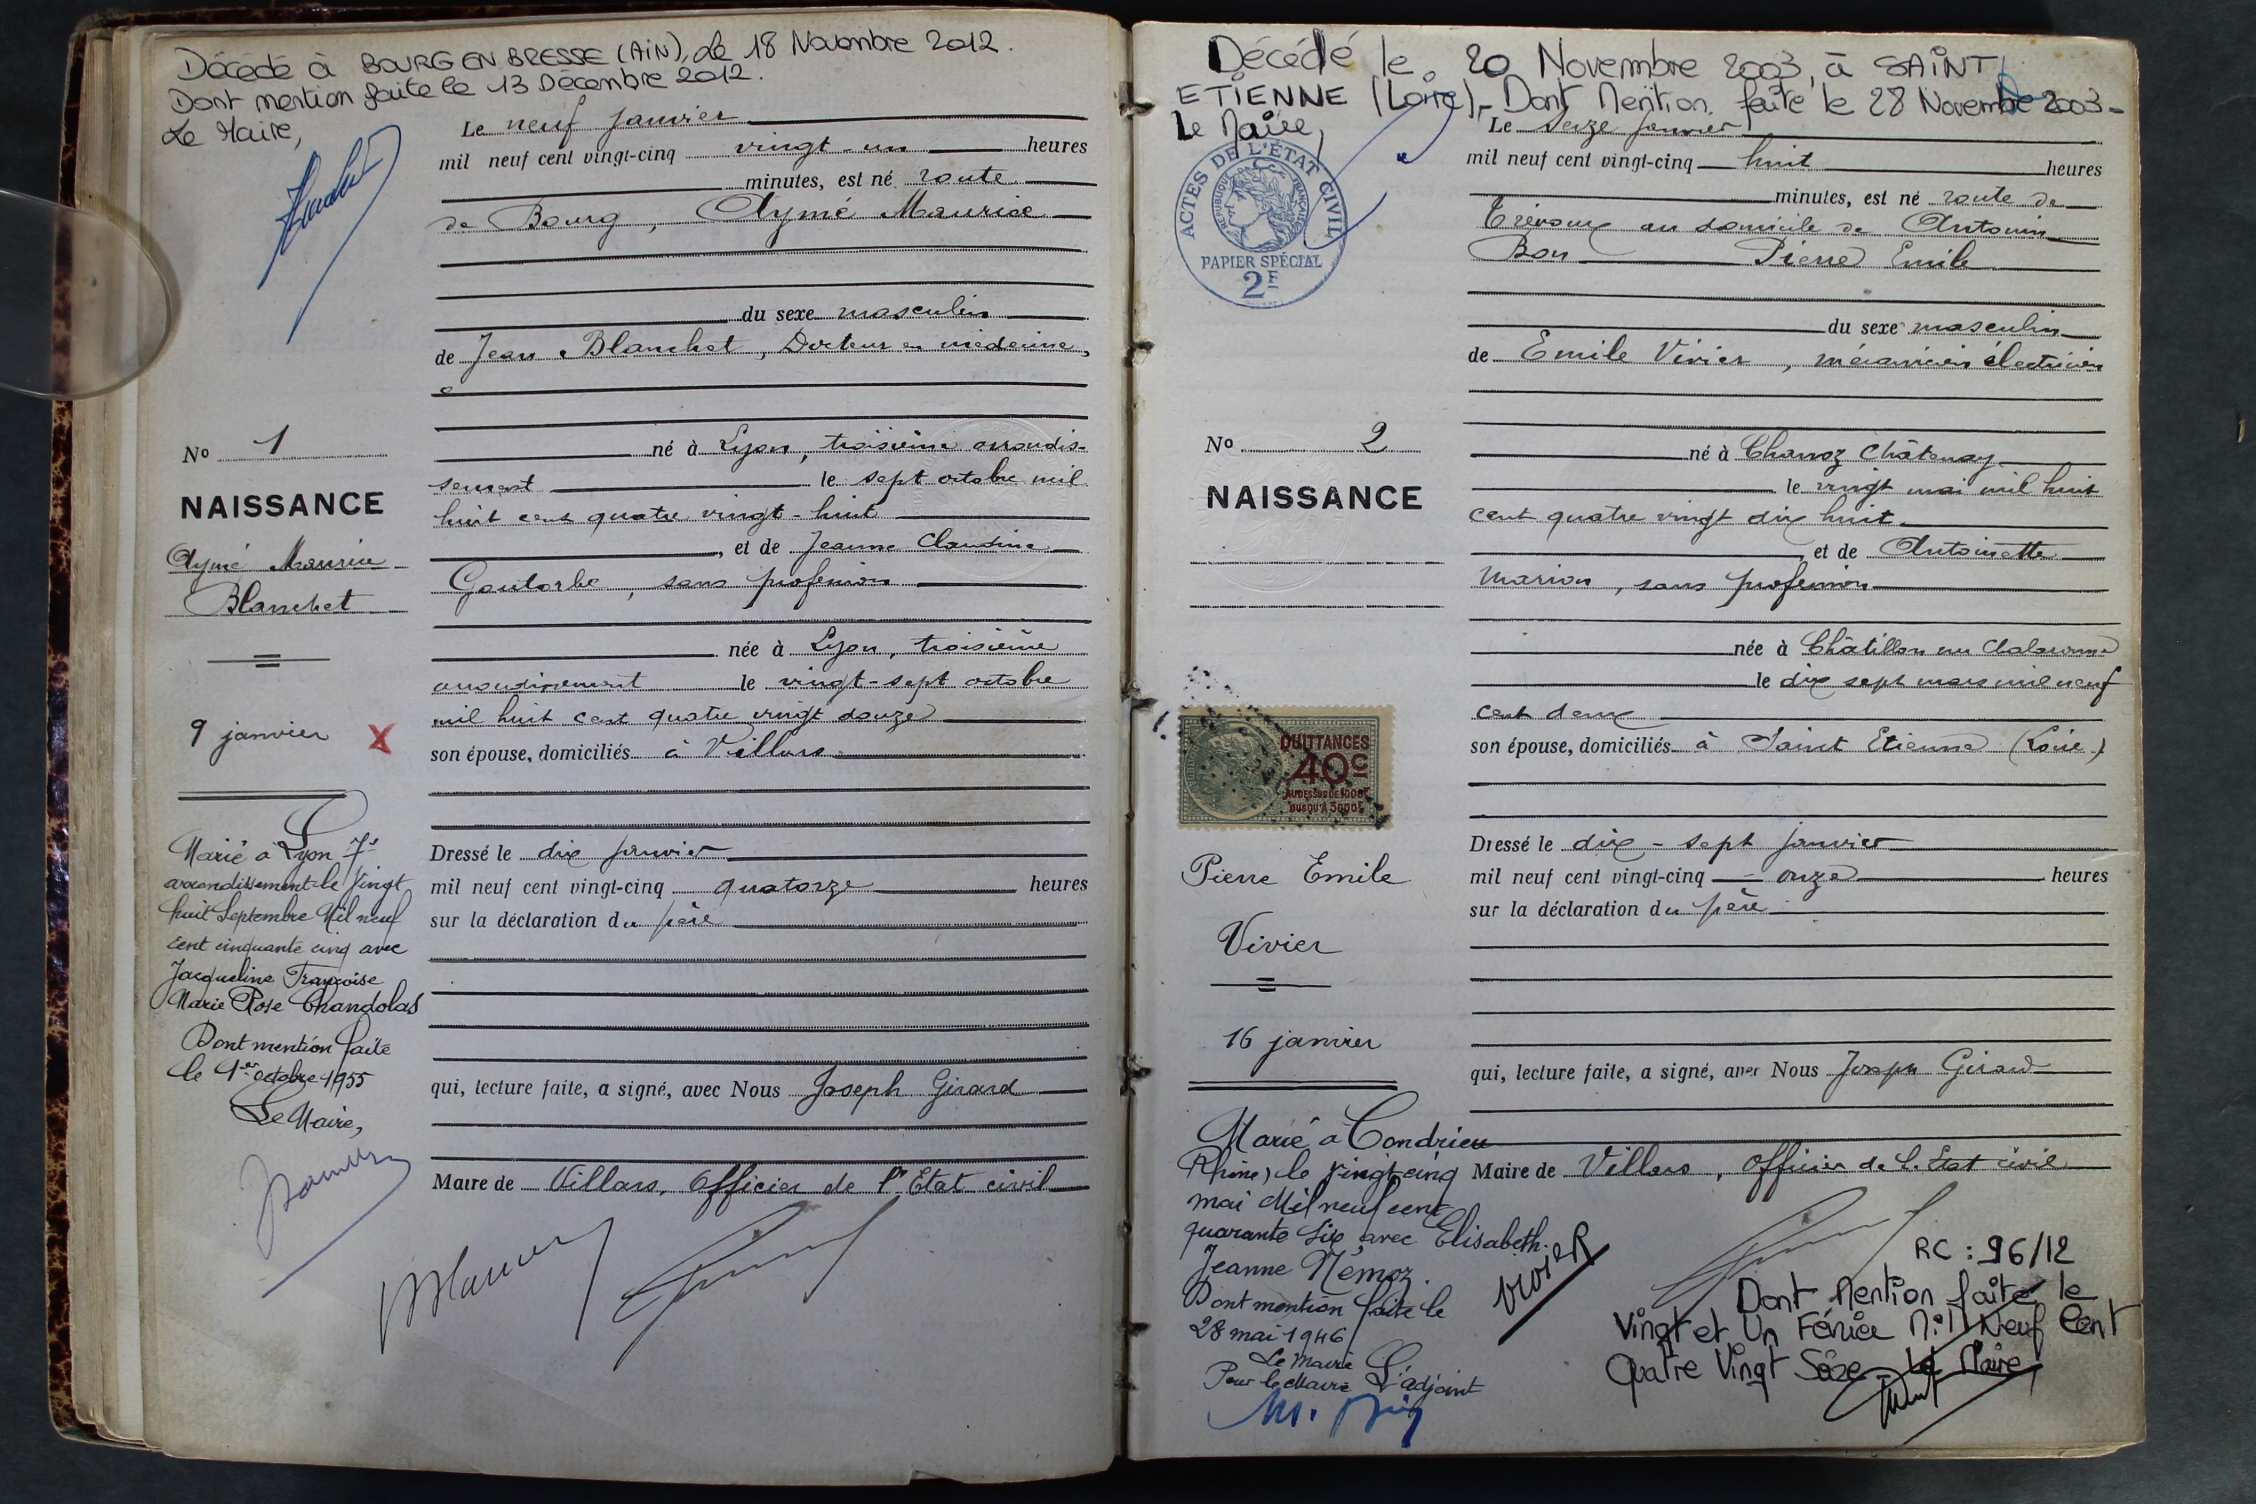 Décédé à BOURG EN BRESSE (AiN), Le 18 Novembre 2012.
Dont mention faite le 13 Décembre 2012.
Le Maire,
Le neuf janvier
mil neuf cent vingt-cinq vingt-un heures
minutes, est né route
de Bourg, Aymé Maurice
du sexe masculin
de Jean Blanchet, Docteur en médecine,
né à Lyon, troisième arrondis-
sement le sept octobre mil
huit cent quatre vingt-huit
, et de Jeanne Claudine
Goutorbe, sans profession
née à Lyon, troisième
arrondissement le vingt-sept octobre
mil huit cent quatre vingt douze
son épouse, domiciliés à Villars
Dressé le dix janvier
mil neuf cent vingt-cinq quatorze heures
sur la déclaration du père
qui, lecture faite, a signé, avec Nous Joseph Girard
Maire de Villars, Officier de l'Etat civil
No 1
NAISSANCE
Aymé Maurice
Blanchet
9 janvier X
Marié à Lyon 7e
arrondissement le vingt
huit Septembre Mil neuf
cent cinquante cinq avec
Jacqueline Françoise
Marie Rose Chandolas
Dont mention faite
le 1er octobre 1955
Le Maire,
Décédé le 20 Novembre 2003, à SAINT
ETIENNE (Loire), Dont Mention faite le 28 Novembre 2003-
Le Maire,
ACTES DE L'ÉTAT CIVIL
RÉPUBLIQUE FRANÇAISE
PAPIER SPÉCIAL
2F
Le seize janvier
mil neuf cent vingt-cinq huit heures
minutes, est né route de
Trévoux au domicile de Antonin
Bon Pierre Emile
du sexe masculin
de Emile Vivier, mécanicien électricien
né à Chanoz Châtenay
le vingt mai mil huit
cent quatre vingt dix huit
et de Antoinette
Marion, sans profession
née à Châtillon sur Chalaronne
le dix sept mars mil neuf
cent deux
son épouse, domiciliés à Saint Etienne (Loire)
Dressé le dix-sept janvier
mil neuf cent vingt-cinq onze heures
sur la déclaration du père
qui, lecture faite, a signé, avec Nous Joseph Girard
Maire de Villars, officier de l'Etat civil
No 2
NAISSANCE
QUITTANCES
40C
AU DESSUS DE 1000F
JUSQU'A 3000F
Pierre Emile
Vivier
16 janvier
Marié à Condrieu
(Rhône) le vingt cinq
mai Mil neuf cent
quarante six avec Elisabeth
Jeanne Némoz.
Dont mention faite le
28 mai 1946
Le Maire
Pour le Maire L'adjoint
VIVIER
RC : 96/12
Dont Mention faite le
Vingt et Un Février Mil Neuf Cent
Quatre Vingt Seize - Le Maire,